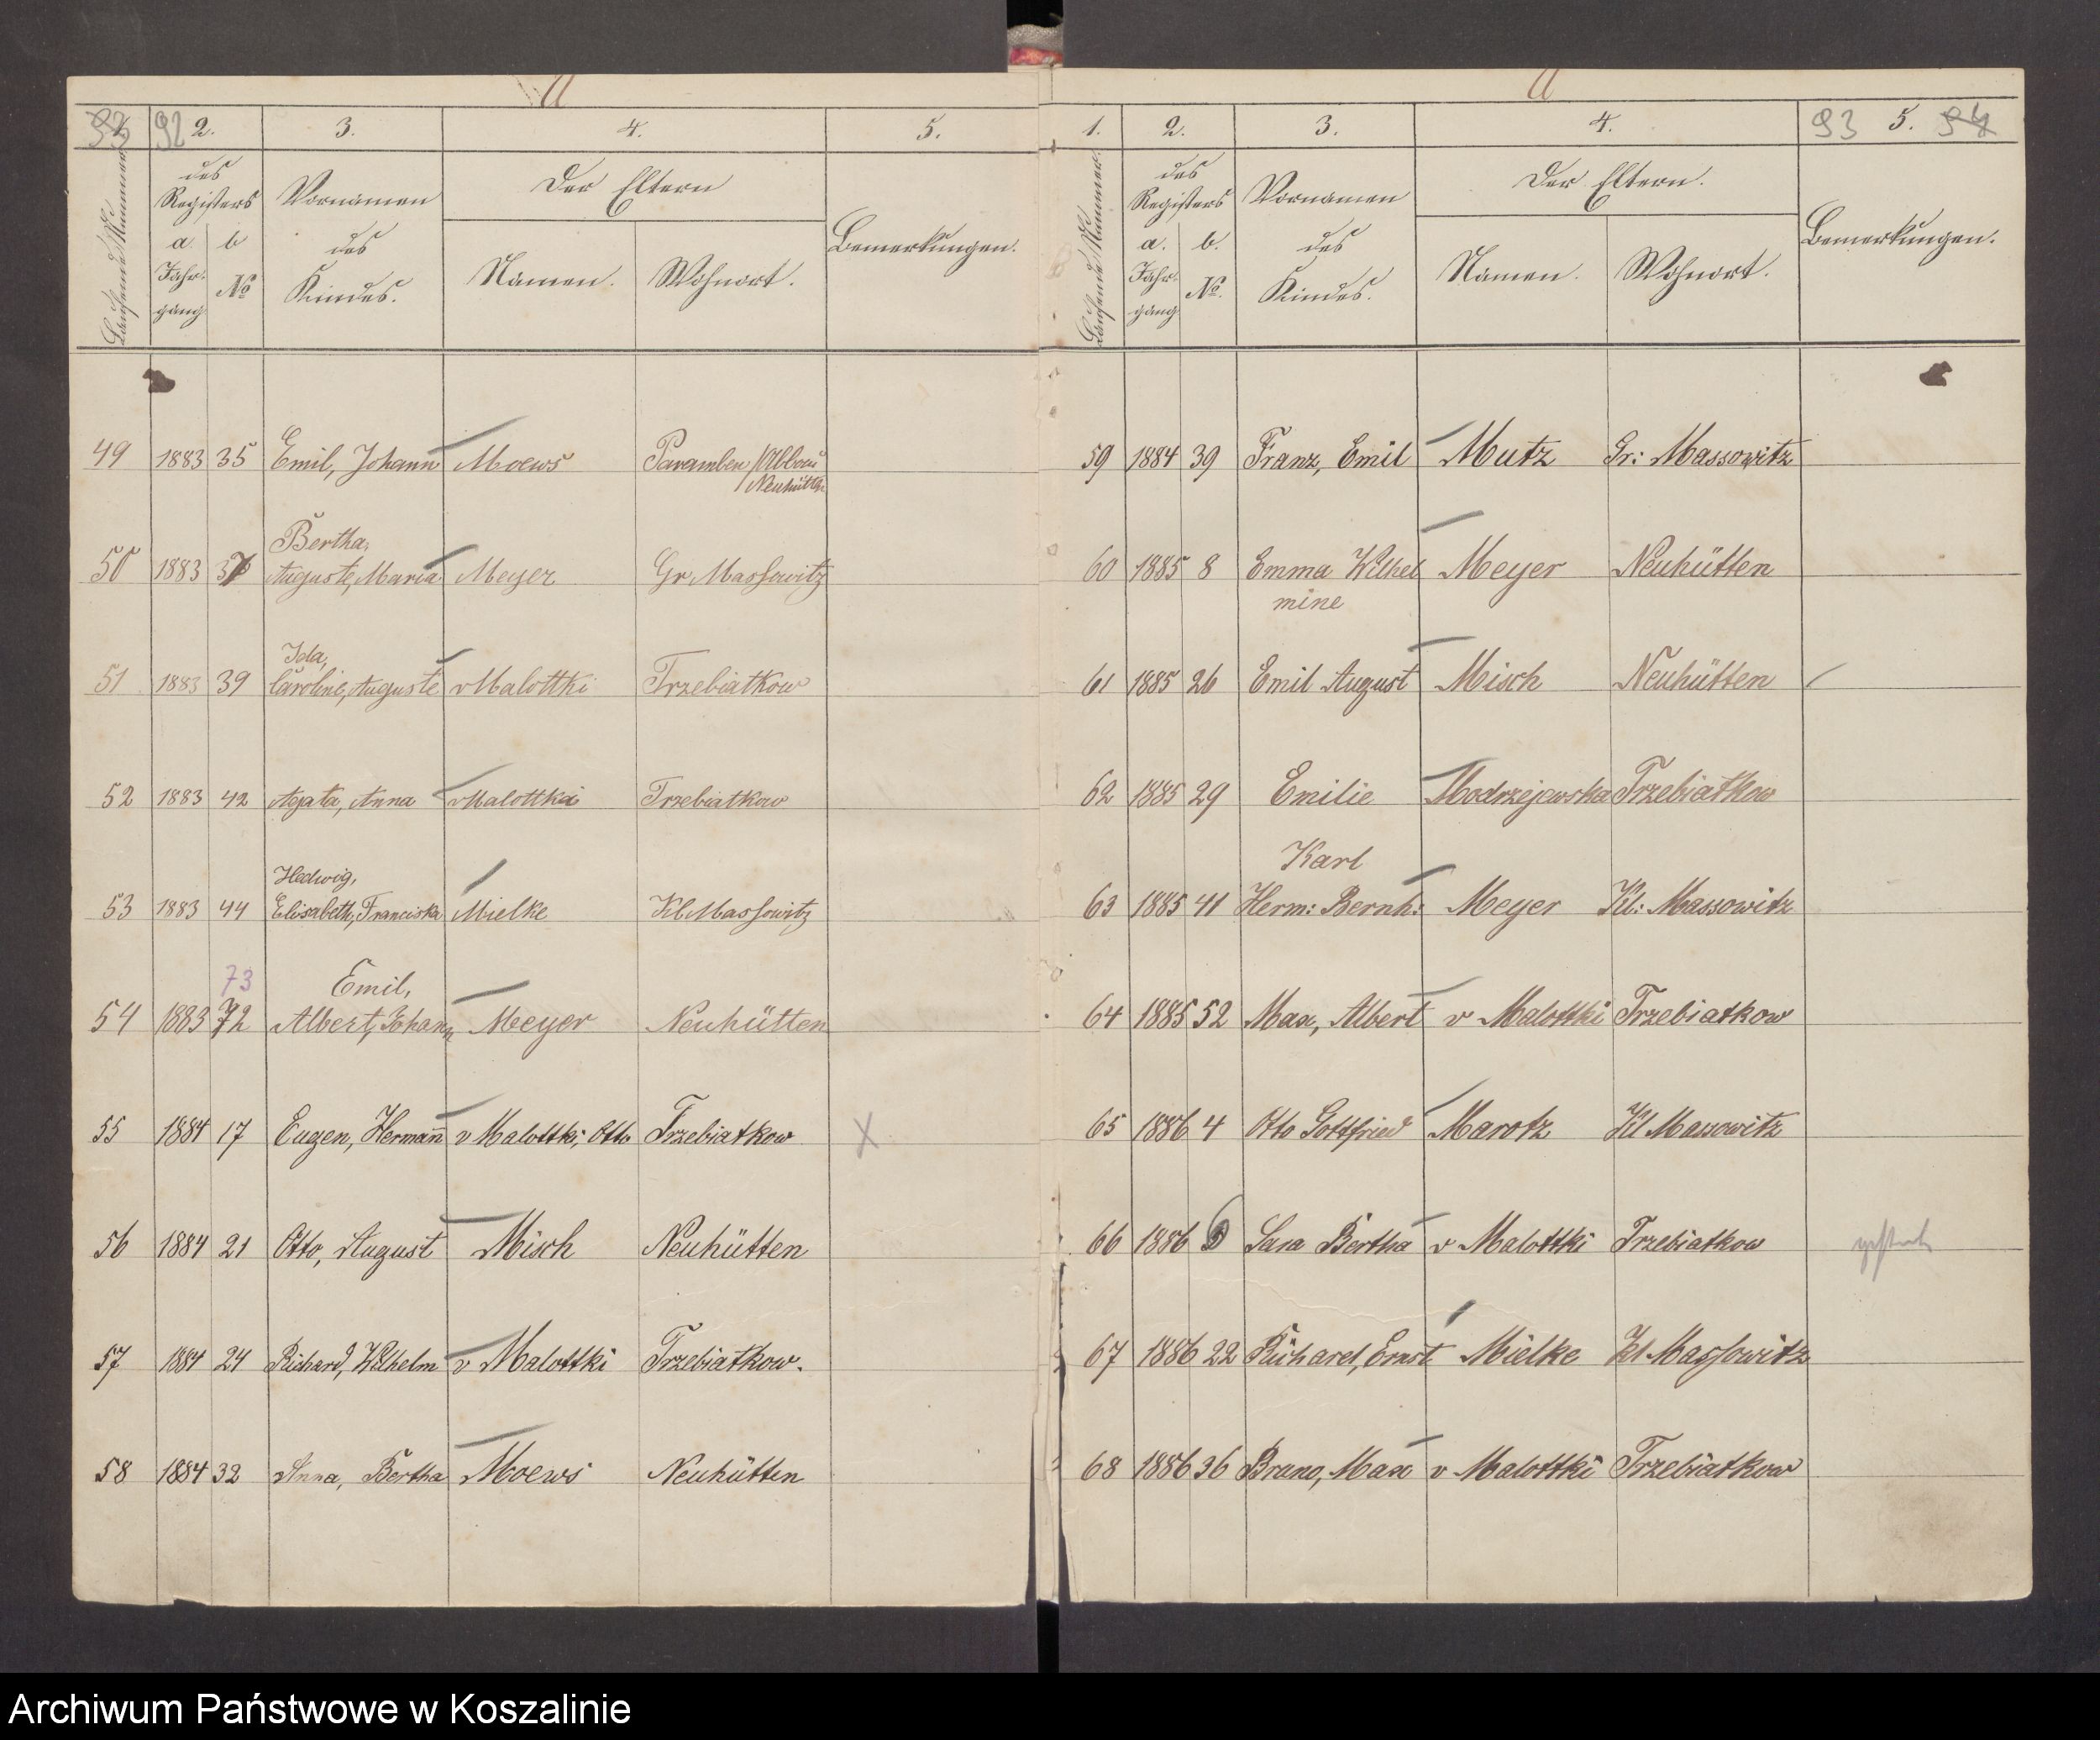 92 2. 3. 4. 5.
Laufende Nummer
des Registers
Vornamen des Kindes.
Der Eltern
Bemerkungen.
a. Jahrgang
b №
Namen. Wohnort.
49 1883 35 Emil, Johann Moews Paramben/Abbau
Neuhütten
Bertha,
50 1883 37 Auguste, Maria Meyer Gr Massowitz
Ida,
51 1883 39 Caroline, Auguste v Malottki Trzebiatkow
52 1883 42 Agata, Anna v Malottki Trzebiatkow
Hedwig,
53 1883 44 Elisabeth, Franciska Mielke Kl Massowitz
73 Emil,
54 1883 72 Albert, Johann Meyer Neuhütten
55 1884 17 Eugen, Hermann v Malottki, Otto Trzebiatkow X
56 1884 21 Otto, August Misch Neuhütten
57 1884 24 Richard, Wilhelm v Malottki Trzebiatkow.
58 1884 32 Anna, Bertha Moews Neuhütten
1. 2. 3. 4. 93 5. 94
Laufende Nummer.
des Registers
Vornamen des Kindes.
Der Eltern.
Bemerkungen.
a. Jahrgang
b. №.
Namen. Wohnort.
59 1884 39 Franz, Emil Mutz Gr: Massowitz
60 1885 8 Emma Wilhel Meyer Neuhütten
mine
61 1885 26 Emil August Misch Neuhütten
62 1885 29 Emilie Modrzejewska Trzebiatkow
Karl
63 1885 41 Herm: Bernh: Meyer Kl: Massowitz
64 1885 52 Max, Albert v Malottki Trzebiatkow
65 1886 4 Otto Gottfried Marotz Kl Massowitz
66 1886 Sara Bertha v Malottki Trzebiatkow
67 1886 22 Richard, Ernst Mielke Kl Massowitz
68 1886 36 Bruno, Max v Malottki Trzebiatkow
Archiwum Państwowe w Koszalinie